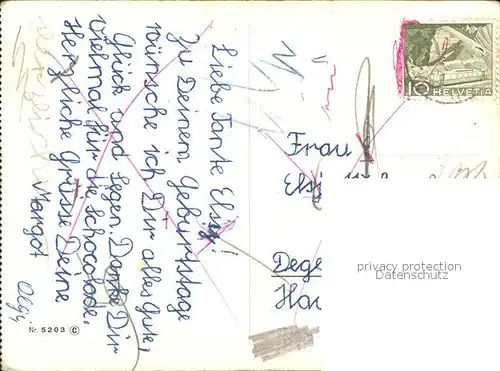 Liebe Tante Elsy!
Zu Deinem Geburtstage
wünsche ich Dir alles Gute,
Glück und Segen. Danke Dir
vielmal für die Schocolade.
Herzliche Grüsse Deine
Margot
Olgi
Nr. 5203 C
10 HELVETIA
Frau
Els
Dege
Ha
privacy protection
Datenschutz